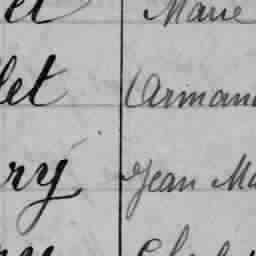 et Marie
let Armand
ry Jean Ma